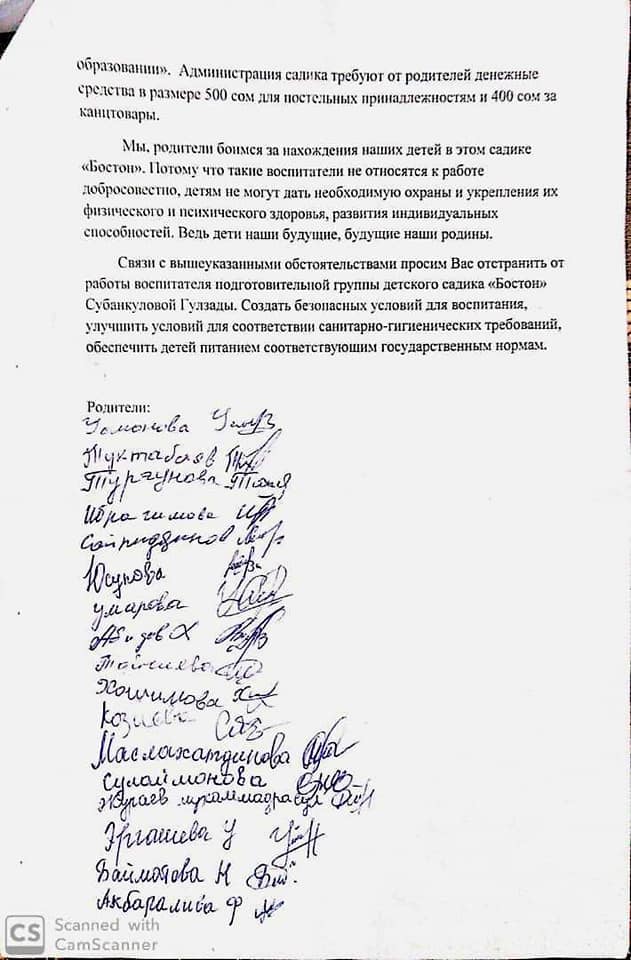 образовании». Администрация садика требуют от родителей денежные
средства в размере 500 сом для постельных принадлежностям и 400 сом за
канцтовары.
Мы, родители боимся за нахождения наших детей в этом садике
«Бостон». Потому что такие воспитатели не относятся к работе
добросовестно, детям не могут дать необходимую охраны и укрепления их
физического и психического здоровья, развития индивидуальных
способностей. Ведь дети наши будущие, будущие наши родины.
Связи с вышеуказанными обстоятельствами просим Вас отстранить от
работы воспитателя подготовительной группы детского садика «Бостон»
Субанкуловой Гулзады. Создать безопасных условий для воспитания,
улучшить условий для соответствии санитарно-гигиенических требований,
обеспечить детей питанием соответствующим государственным нормам.
Родители:
Усмонова
Туктабаев
Тургунова
Ибрагимова
Юсупова
умарова
Хошимова
Козиева
Маслахатдинова
Сулаймонова
Жураев мухаммадрасул
Эргашева У
Баймотова Н
Акбаралиева Ф
CS Scanned with
CamScanner